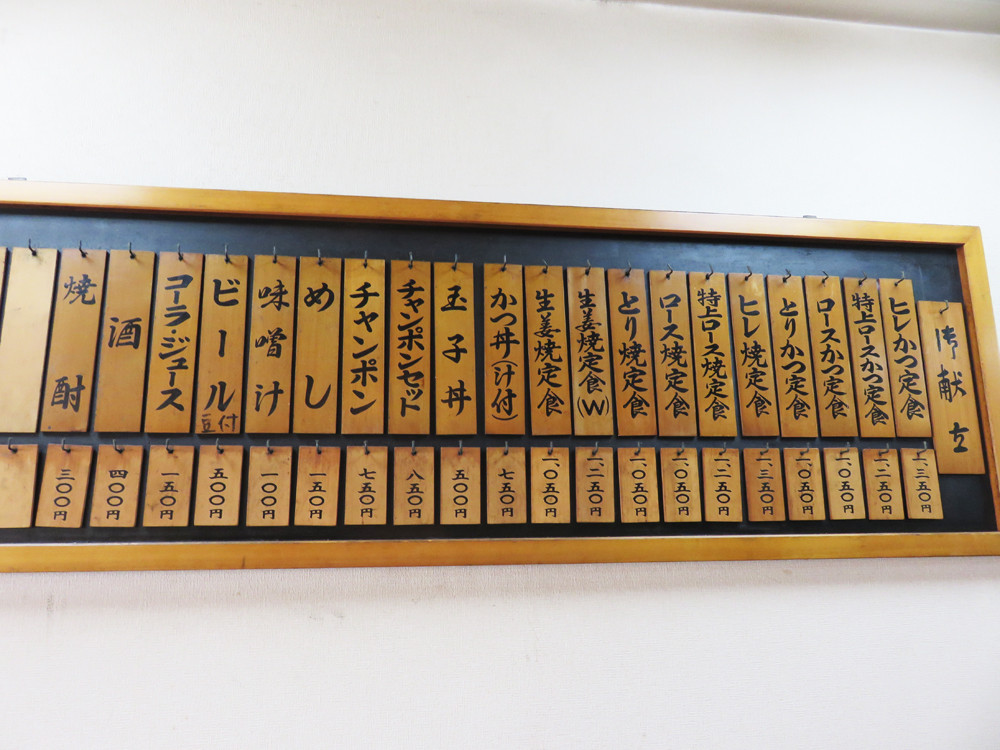 御献立
ヒレかつ定食
一、三五〇円
特上ロースかつ定食
一、二五〇円
ロースかつ定食
一、〇五〇円
とりかつ定食
一、〇五〇円
ヒレ焼定食
一、三五〇円
特上ロース焼定食
一、二五〇円
ロース焼定食
一、〇五〇円
とり焼定食
一、〇五〇円
生姜焼定食(W)
一、二五〇円
生姜焼定食
一、〇五〇円
かつ丼(汁付)
七五〇円
玉子丼
五〇〇円
チャンポンセット
八五〇円
チャンポン
七五〇円
めし
一五〇円
味噌汁
一〇〇円
ビール
豆付
五〇〇円
コーラ・ジュース
一五〇円
酒
四〇〇円
焼酎
三〇〇円